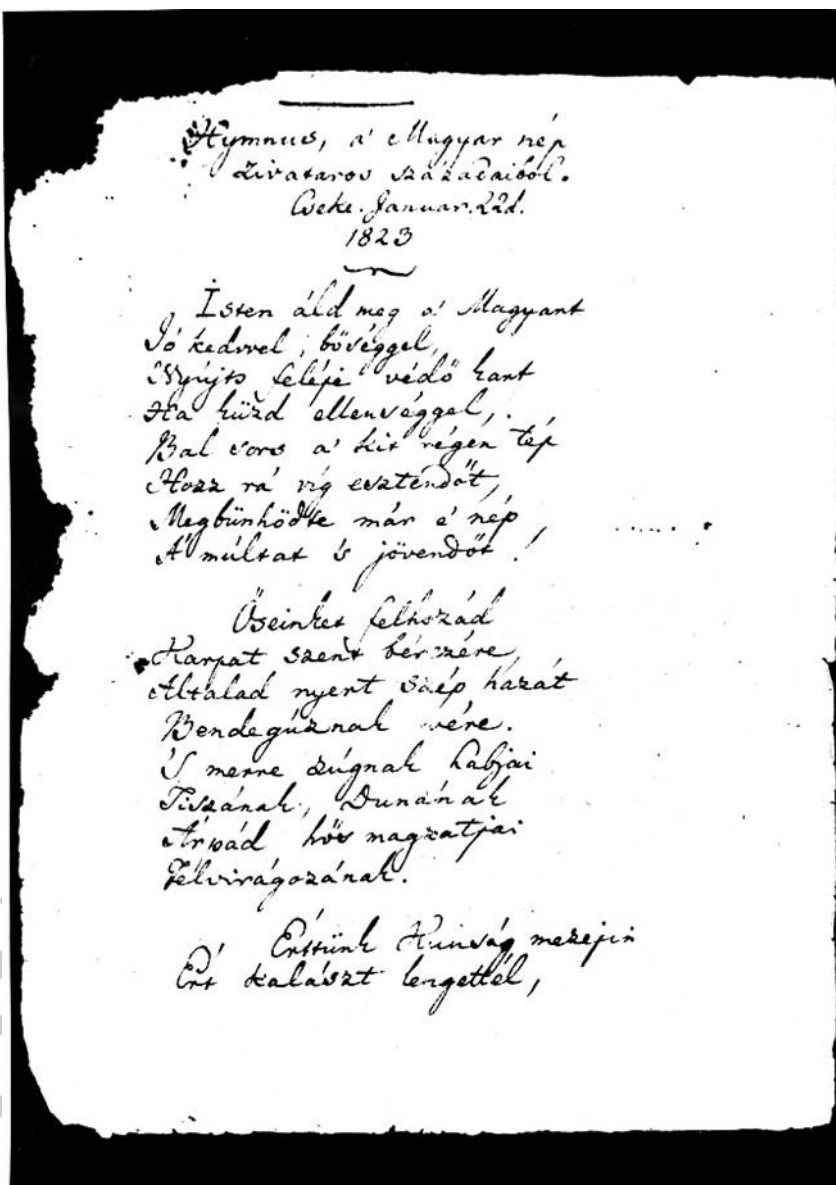 Hymnus, a' Magyar nép
zivataros századaiból.
Cseke. Januar. 22d.
1823
Isten áld meg a' Magyart
Jó kedvvel, bőséggel,
Nyújts feléje védő kart
Ha küzd ellenséggel,
Bal sors a' kit régen tép
Hozz rá víg esztendőt,
Megbünhödte már e' nép
A' multat 's jövendőt!
Őseinket felhozád
Kárpát szent bérczére,
Általad nyert szép hazát
Bendegúznak vére.
'S merre zúgnak habjai
Tiszának, Dunának
Árpád hős magzatjai
Felvirágozának.
Érttünk Kunság mezejin
Ért kalászt lengettél,